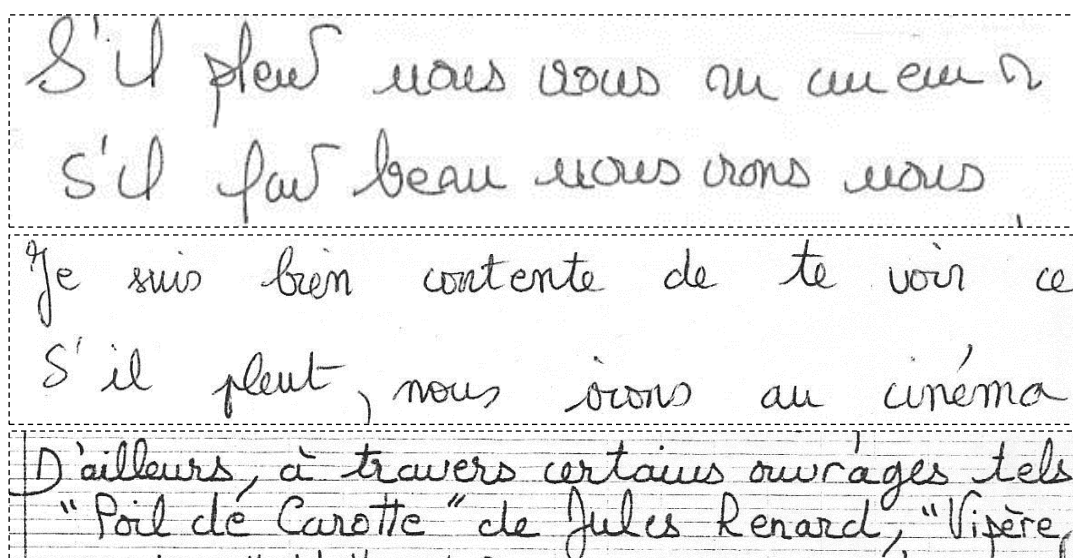 S'il pleut nous irons au
S'il fait beau nous irons nous
Je suis bien contente de te voir ce
S'il pleut, nous irons au cinéma
D'ailleurs, à travers certains ouvrages tels
"Poil de Carotte" de Jules Renard, "Vipère,